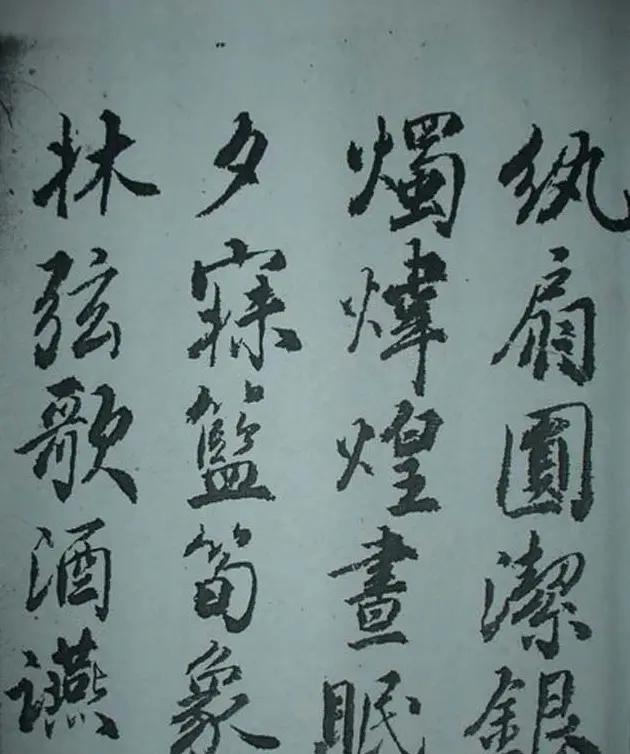 紈扇圓潔銀
燭煒煌晝眠
夕寐籃筍象
牀弦歌酒讌